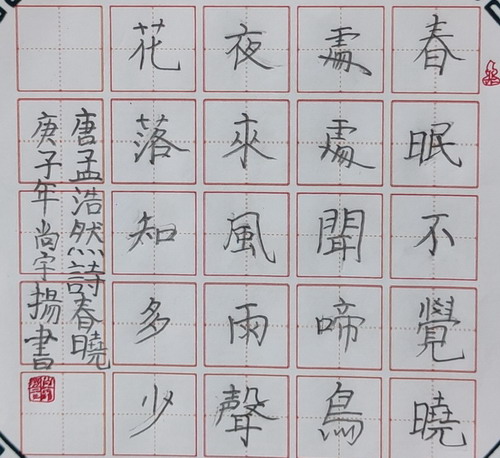 春眠不覺曉
處處聞啼鳥
夜來風雨聲
花落知多少
唐孟浩然詩春曉
庚子年尚宇揚書